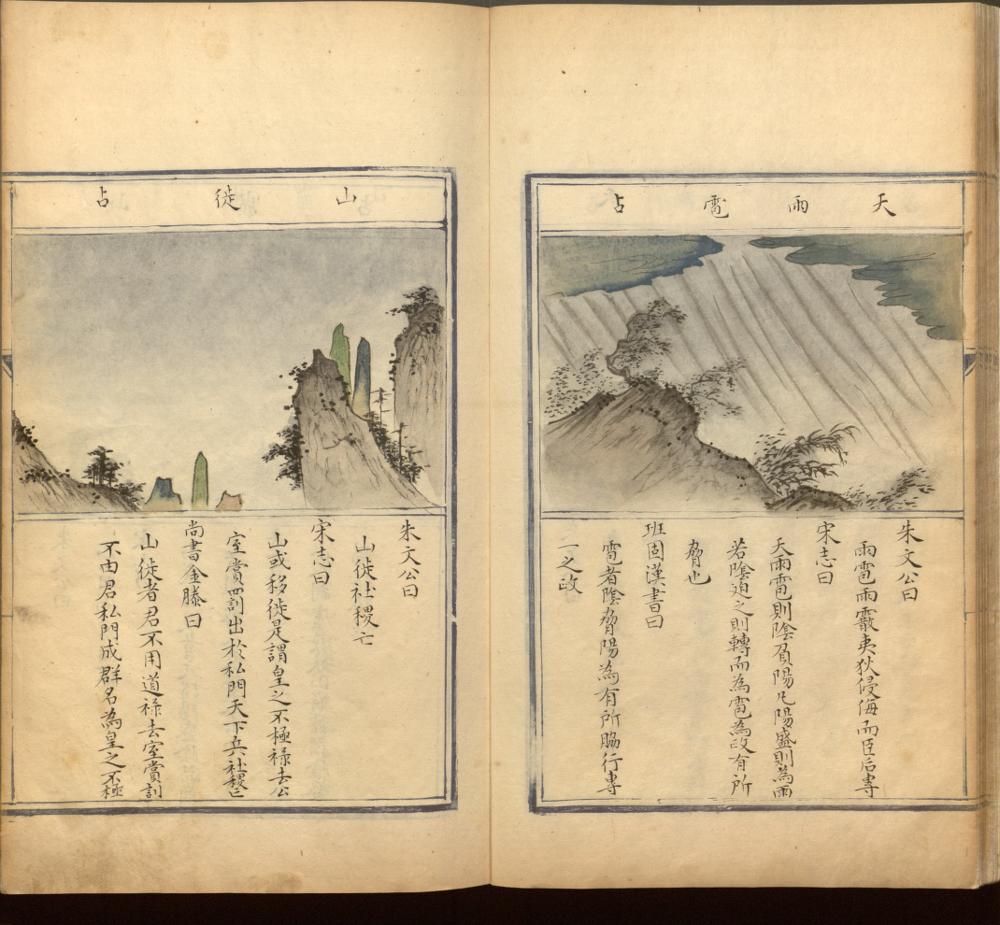 天雨雹占
朱文公曰
雨雹雨霰夷狄侵侮而臣后專
宋志曰
天雨雹則陰負陽凡陽盛則為雨
若陰迫之則轉而為雹為政有所
脅也
班固漢書曰
雹者陰脅陽為有所脇行專
一之政
山徙占
朱文公曰
山徙社稷亡
宋志曰
山或移徙是謂皇之不極祿去公
室賞罰出於私門天下兵社稷亡
尚書金滕曰
山徙者君不用道祿去室賞訓
不由君私門成群名為皇之不極